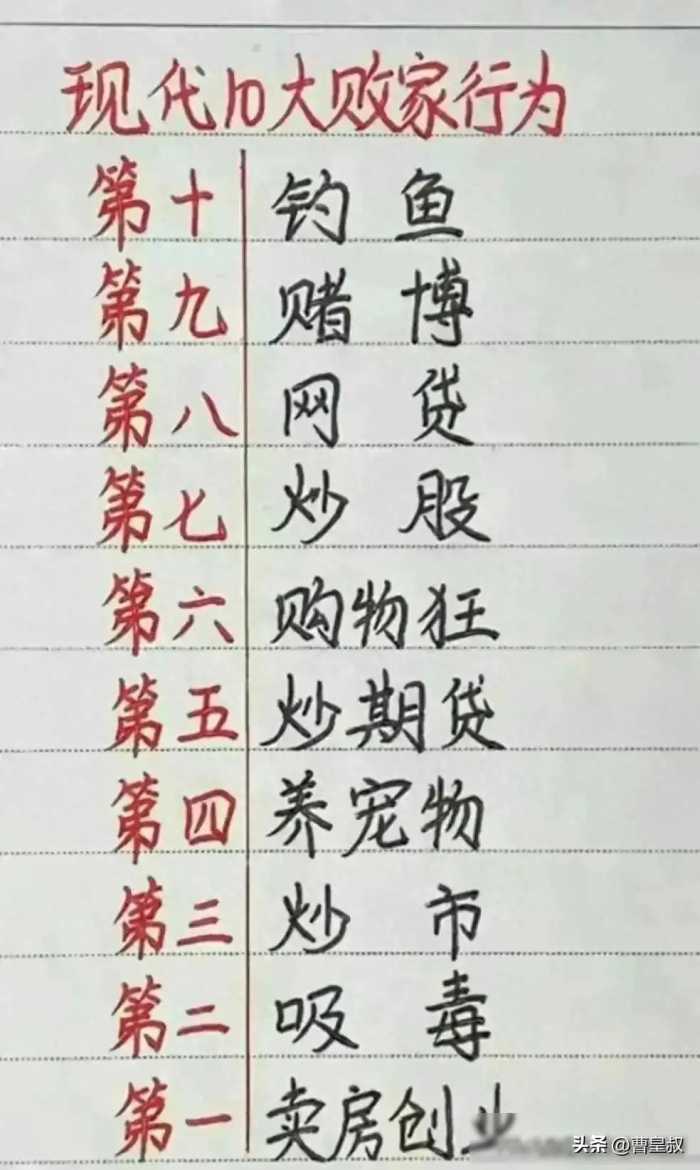 现代10大败家行为
第十 钓鱼
第九 赌博
第八 网贷
第七 炒股
第六 购物狂
第五 炒期贷
第四 养宠物
第三 炒市
第二 吸毒
第一 卖房创业
头条 @曹皇叔